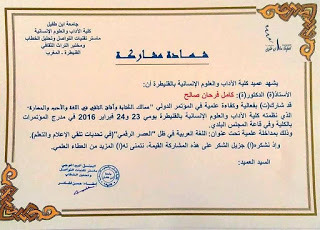 جامعة ابن طفيل
كلية الآداب والعلوم الإنسانية
ماستر تقنيات التواصل وتحليل الخطاب
ومختبر التراث الثقافي
القنيطرة - المغرب
شهادة مشاركة
يشهد عميد كلية الآداب والعلوم الإنسانية بالقنيطرة أن:
الأستاذ(ة) الدكتور(ة): كامل فرحان صالح
قد شارك(ت) بفعالية وكفاءة علمية في المؤتمر الدولي " الكتابة وآفاق التلقي في اللغة والأدب والحضارة"
الذي نظمته كلية الآداب والعلوم الإنسانية بالقنيطرة يومي 23 و24 فبراير 2016 في مدرج المؤتمرات
بالكلية وفي قاعة المجلس البلدي.
وذلك بمداخلة علمية تحت عنوان: اللغة العربية في ظل "العصر الرقمي" (في تحديات تلقي الإعلام والتعلم).
وإذ نشكره(ا) جزيل الشكر على هذه المشاركة القيمة، نتمنى له(ا) المزيد من العطاء العلمي.
السيد العميد: